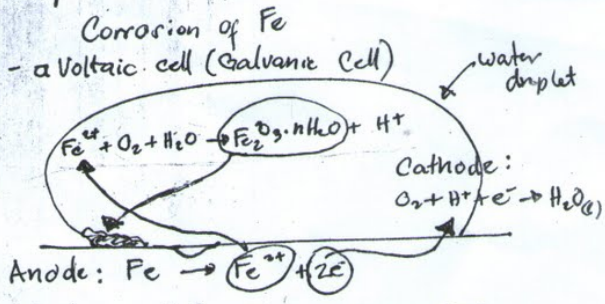 Corrosion of Fe
- a Voltaic cell (Galvanic Cell)
water
droplet
Fe²⁺ + O₂ + H₂O → Fe₂O₃·nH₂O + H⁺
Cathode:
O₂ + H⁺ + e⁻ → H₂O(l)
Anode: Fe → Fe²⁺ + 2e⁻